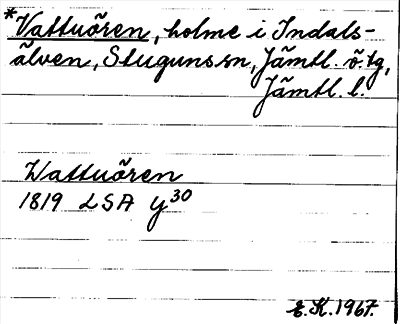 *Vattuören, holme i Indals-
älven, Stuguns sn, Jämtl. ö. tg,
Jämtl. l.
Wattuören
1819 LSA y30
E.K. 1967.